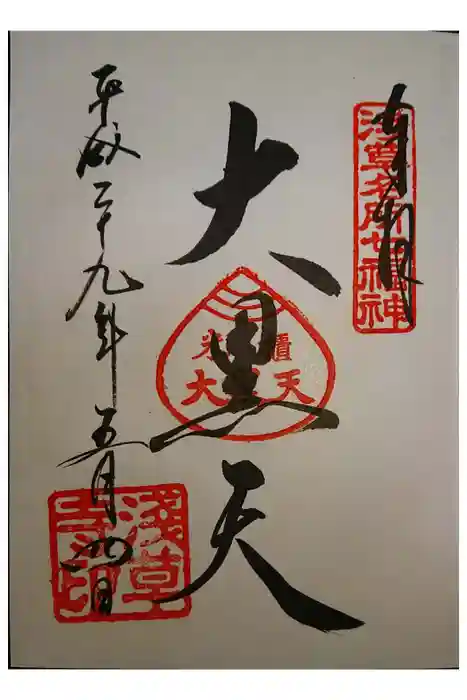 奉拝
浅草名所七福神
大黒天
米櫃
大黒天
平成二十九年五月四日
淺草
寺印